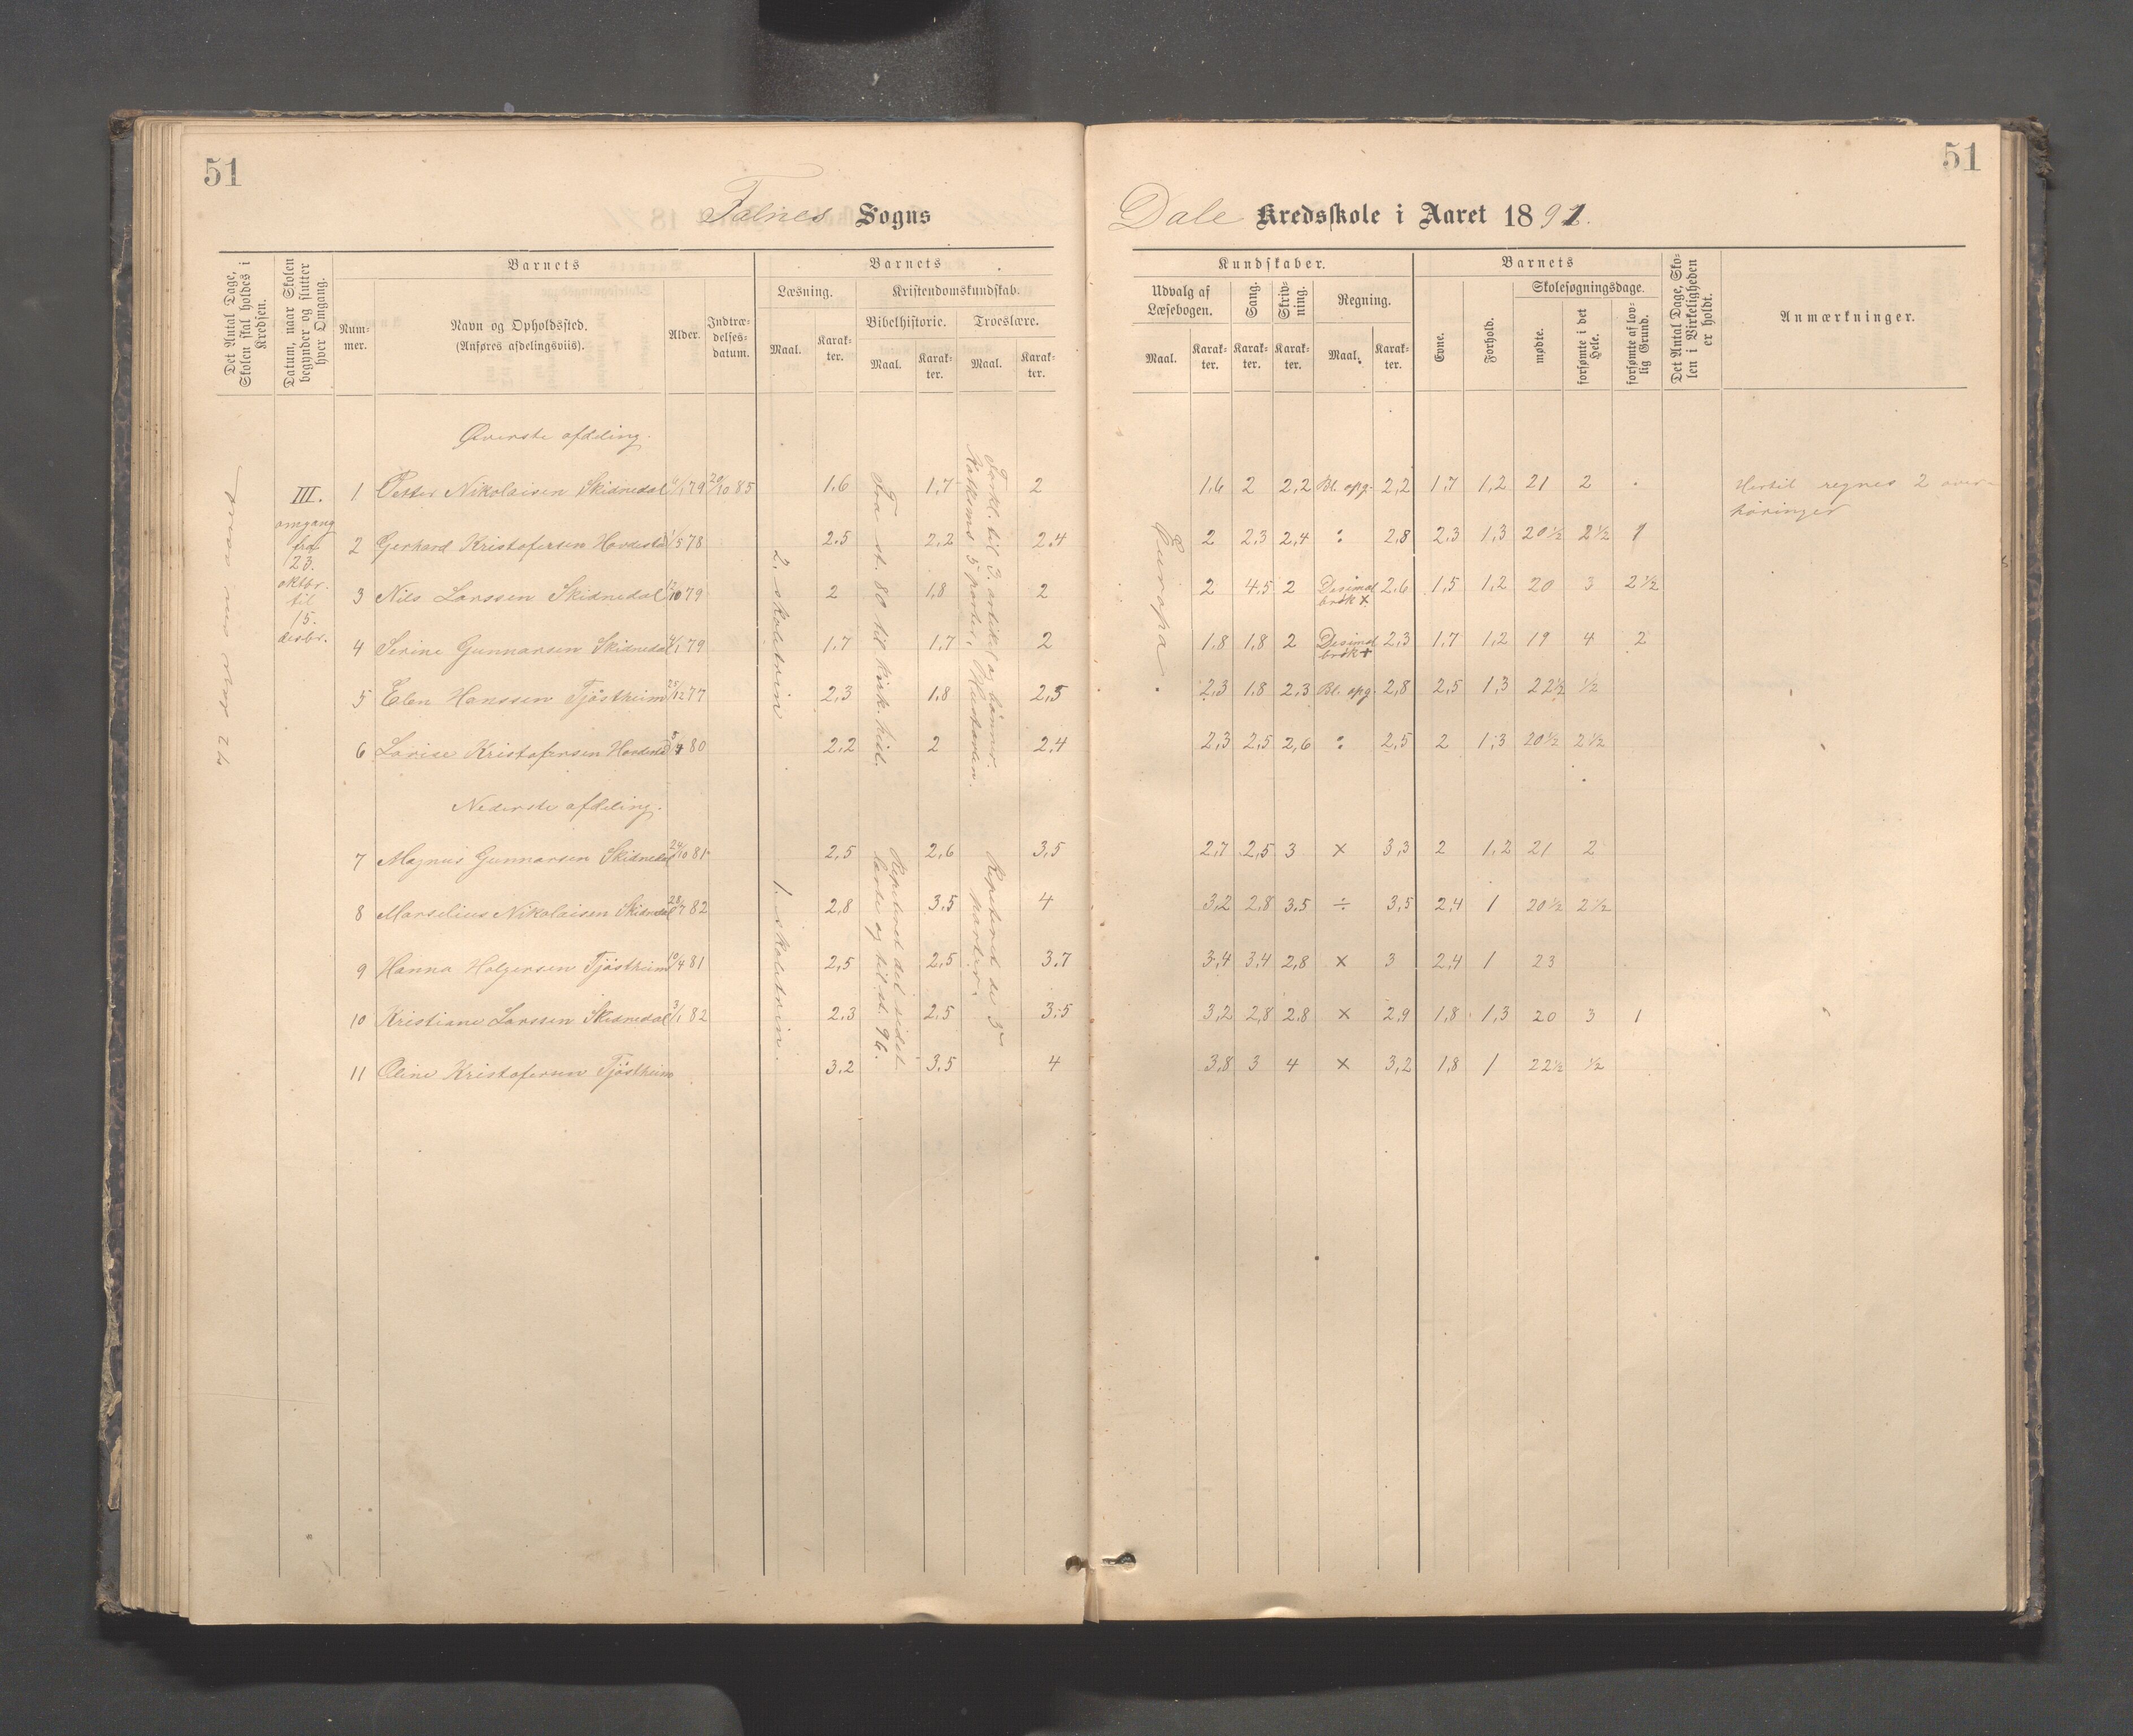 51
51
Falnes Sogns
Dale Kredsskole i Aaret 1891.
Det Antal Dage, Skolen skal holdes i Kredsen.
Datum, naar Skolen begynder og slutter hver Omgang.
Barnets
Num-
mer.
Navn og Opholdssted.
(Anføres afdelingsviis).
Alder.
Indtræ-
delses-
datum.
Barnets
Læsning.
Kristendomskundskab.
Bibelhistorie.
Troeslære.
Maal.
Karak-
ter.
Maal.
Karak-
ter.
Maal.
Karak-
ter.
Kundskaber.
Udvalg af
Læsebogen.
Sang.
Skriv-
ning.
Regning.
Maal.
Karak-
ter.
Karak-
ter.
Karak-
ter.
Maal.
Karak-
ter.
Barnets
Evne.
Forhold.
Skolesøgningsdage.
mødte.
forsømte i det Hele.
forsømte af lov-
lig Grund.
Det Antal Dage, Sko-
len i Virkeligheden
er holdt.
Anmærkninger.
Øverste afdeling.
III.
omgang
fra
23.
oktbr.
til
15.
desbr.
1 Petter Nikolaisen Skidnedal 4/1 79 20/10 85 1.6 1,7 2 1,6 2 2,2 Bl. opg. 2,2 1,7 1,2 21 2
Hertil regnes 2 over-
høringer
2 Gerhard Kristofersen 1/5 78 2.5 2,2 2.4 2 2,3 2,4 : 2,8 2,3 1,3 20½ 2½ 1
3 Nils Larssen Skidnedal 12/10 79 2 1,8 2 2 4.5 2 Desimal
brøk × 2,6 1,5 1,2 20 3 2½
4 Serine Gunnarsen Skidnedal 4/1 79 1.7 1,7 2 1.8 1,8 2 Desimal
brøk + 2,3 1,7 1,2 19 4 2
5 Elen Hanssen Tjøstheim 25/12 77 2,3 1.8 2,5 2,3 1,8 2,3 Bl. opg. 2,8 2,5 1,3 22½ ½
6 Larise Kristofersen 80 2.2 2 2,4 2,3 2,5 2,6 : 2,5 2 1,3 20½ 2½
2. skoletrin
Fra st. 80 til kirk. hist.
Forkl. til 3. artikel og bønner.
Katksms 5 parter,
Europa.
Nederste afdeling.
7 Magnus Gunnarsen Skidnedal 24/10 81 2,5 2,6 3,5 2,7 2,5 3 × 3,3 2 1,2 21 2
8 Marselius Nikolaisen Skidnedal 28/7 82 2,8 3,5 4 3,2 2,8 3.5 ÷ 3,5 2,4 1 20½ 2½
9 Hanna Holgersen Tjøstheim 10/4 81 2,5 2,5 3.7 3,4 3,4 2,8 × 3 2,4 1 23
10 Kristiane Larssen Skidnedal 3/1 82 2.3 2.5 3.5 3,2 2,8 2.8 × 2,9 1,8 1,3 20 3 1
11 Oline Kristofersen Tjøstheim 3.2 3.5 4 3,8 3 4 × 3,2 1,8 1 22½ ½
1. skoletrin.
Repeteret det sidst
lærte og til st. 96.
Repeteret de 5
parter.